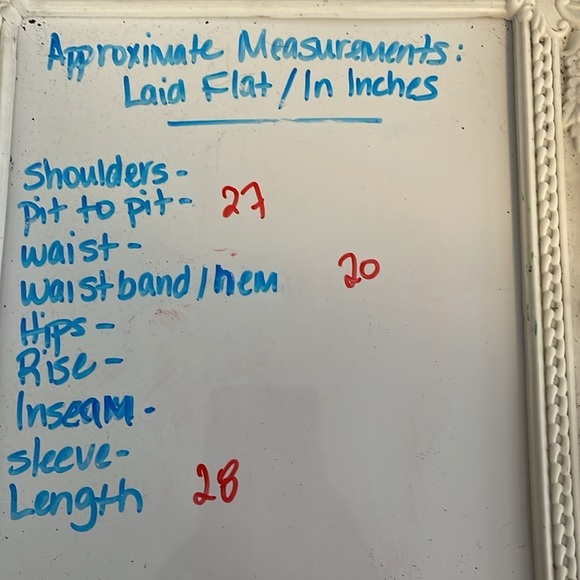 Approximate Measurements:
Laid Flat / In Inches
Shoulders -
pit to pit - 27
waist -
waistband / hem 20
Hips -
Rise -
Inseam -
sleeve -
Length 28